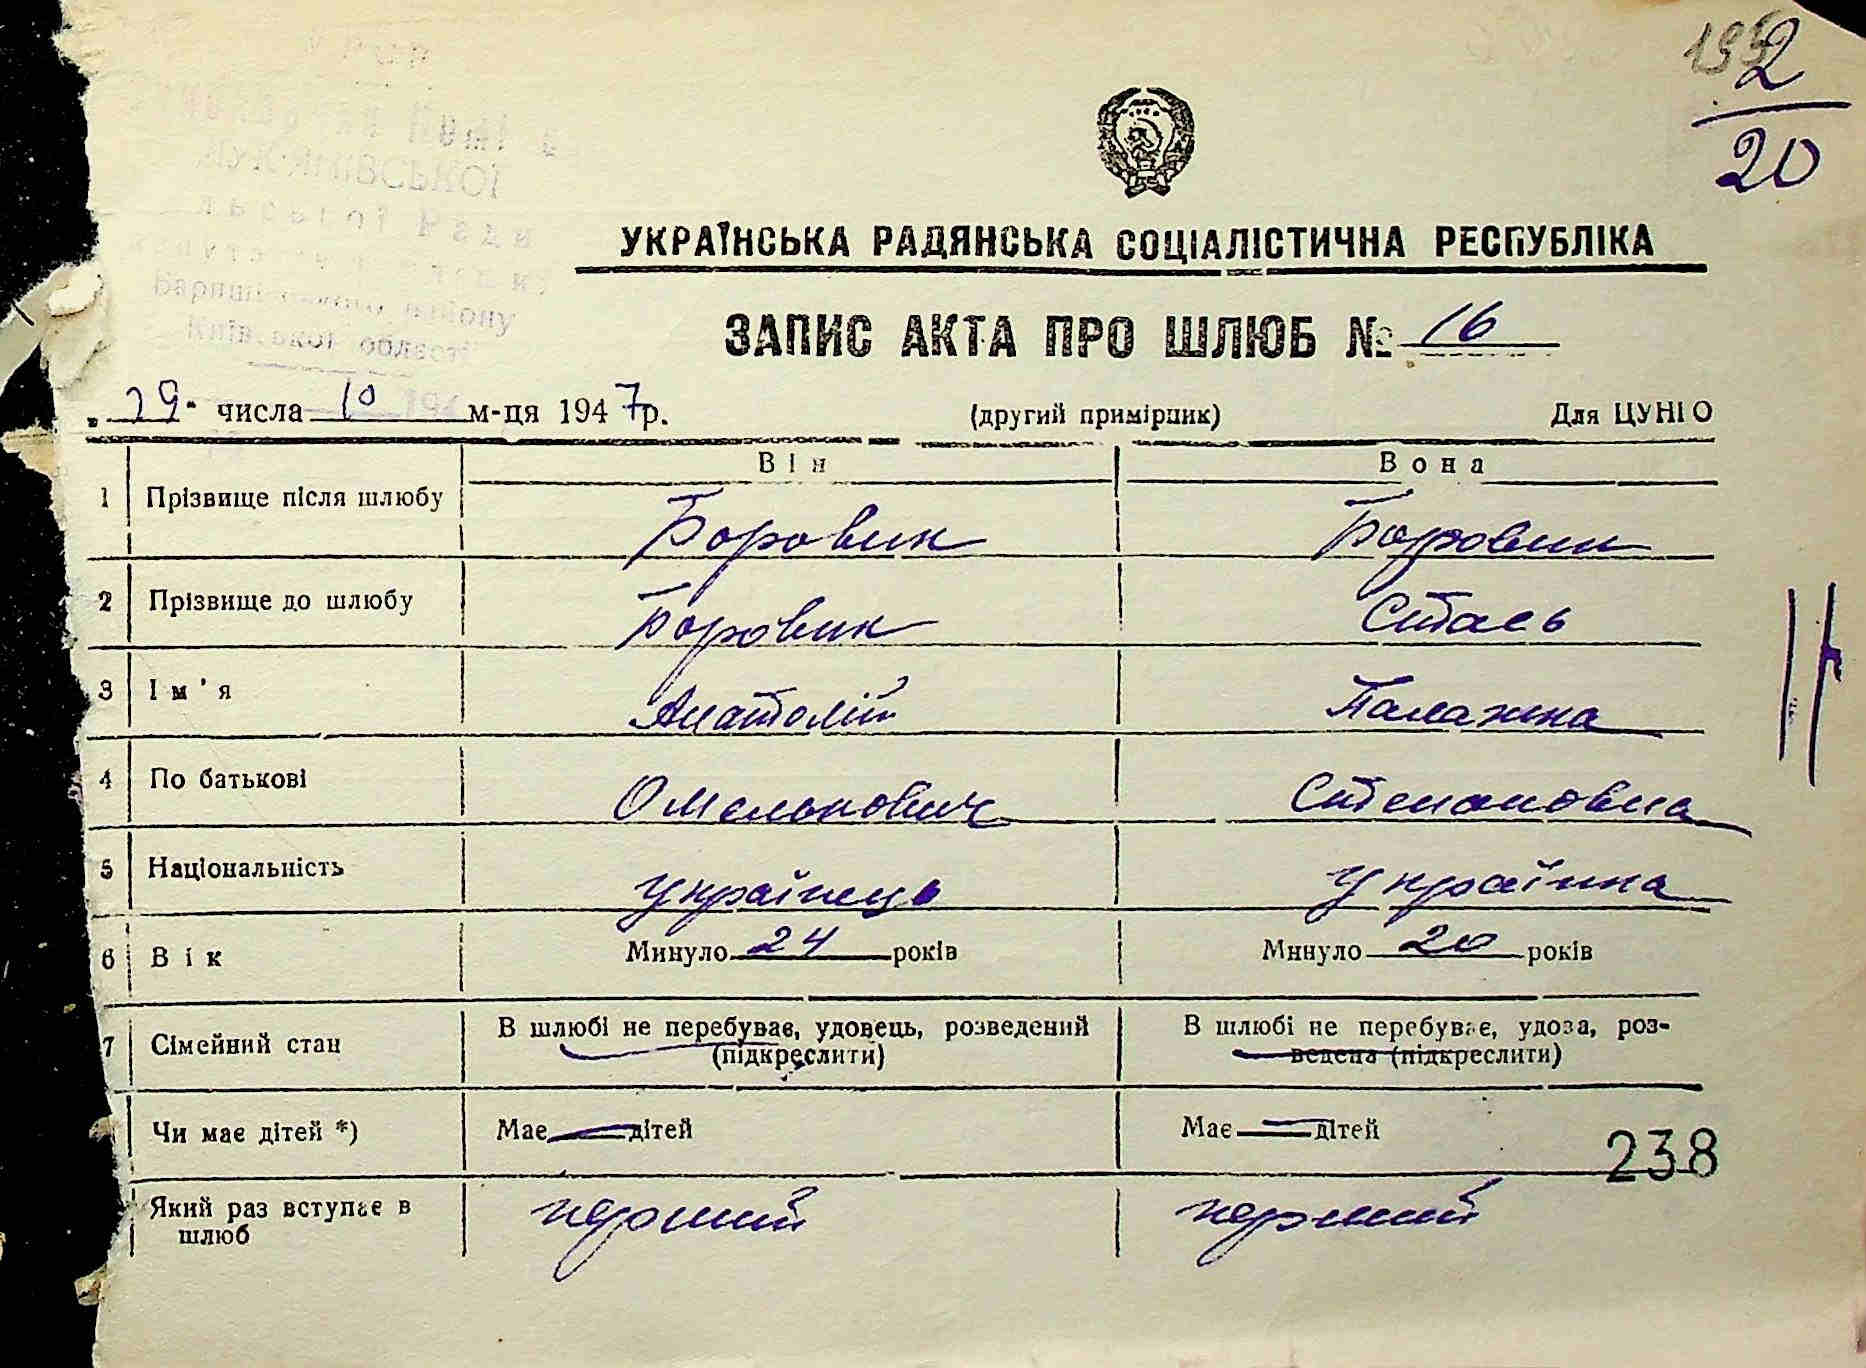 192
2
20
УРСР
Виконавчий Комітет
ЛУК'ЯНІВСЬКОЇ
Ради
Баришівського району
Київської області
УКРАЇНСЬКА РАДЯНСЬКА СОЦІАЛІСТИЧНА РЕСПУБЛІКА
ЗАПИС АКТА ПРО ШЛЮБ № 16
„29“ числа 10 м-ця 1947 р. (другий примірник) Для ЦУНГО
Він Вона
1 Прізвище після шлюбу Боровик Боровик
2 Прізвище до шлюбу Боровик Стась
3 Ім'я Анатолій Палажка
4 По батькові Омелькович Степановна
5 Національність українець українка
6 Вік Минуло 24 років Минуло 20 років
7 Сімейний стан В шлюбі не перебуває, удовець, розведений (підкреслити) В шлюбі не перебуває, удова, розведена (підкреслити)
Чи має дітей *) Має — дітей Має — дітей
238
Який раз вступає в шлюб перший перший